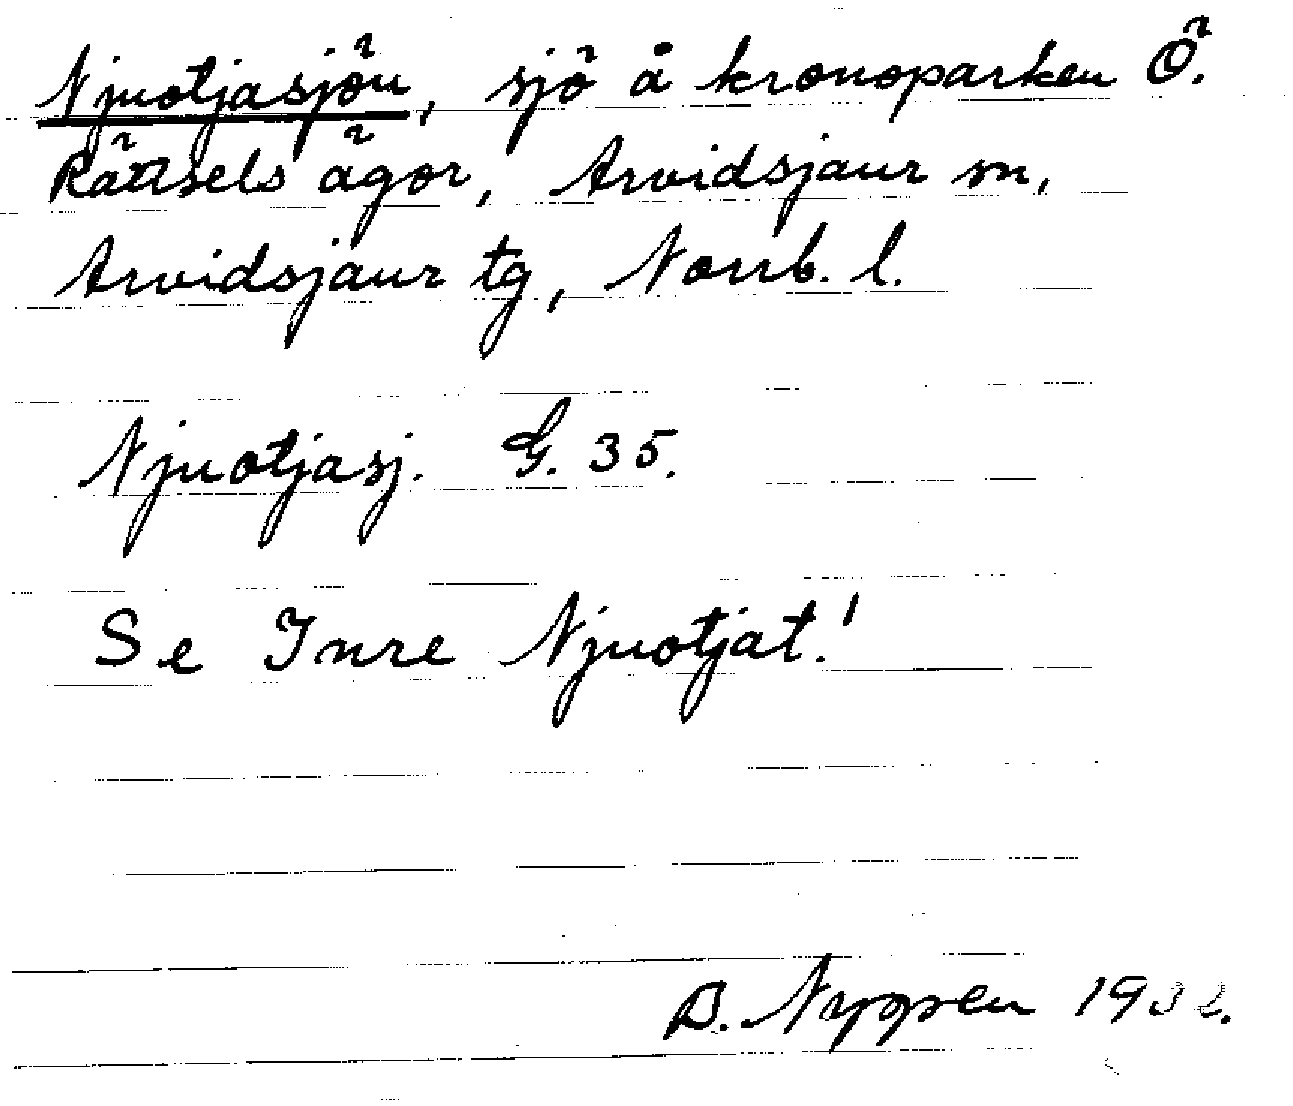 Njuotjasjön, sjö å kronoparken Ö.
Rättsels ägor, Arvidsjaur sn,
Arvidsjaur tg, Norrb. l.
Njuotjasj. G. 35.
Se Inre Njuotjat!
B. Nygren 1932.